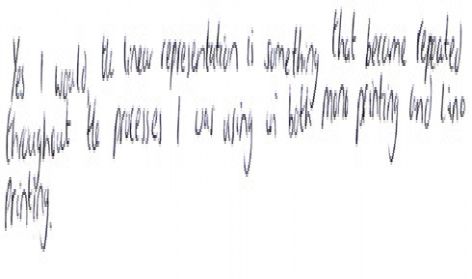 Yes I would, the linear representation is something that became repeated
throughout the processes I was using in both mono printing and lino
printing.